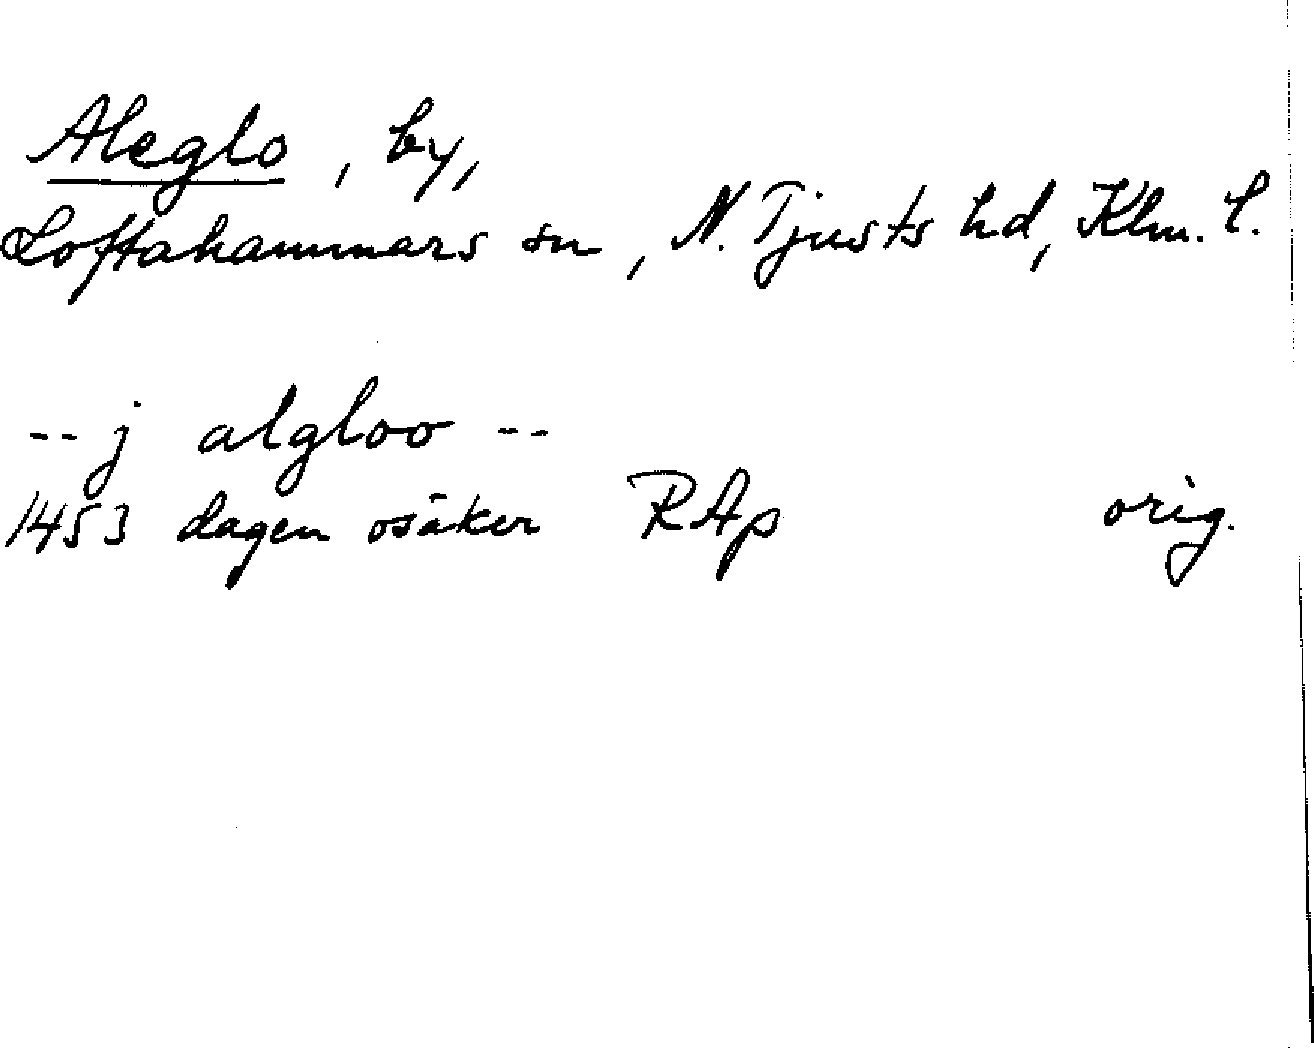 Aleglo, by,
Loftahammars sn, N. Tjusts hd, Klm. l.
-- j algloo --
1453 dagen osäker RAp orig.